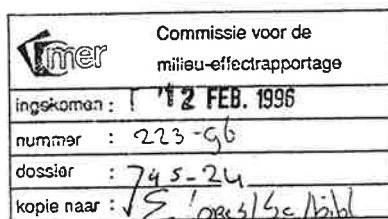 mer
Commissie voor de
milieu-effectrapportage
ingekomen : 12 FEB. 1996
nummer : 223-96
dossier : 745-24
kopie naar :